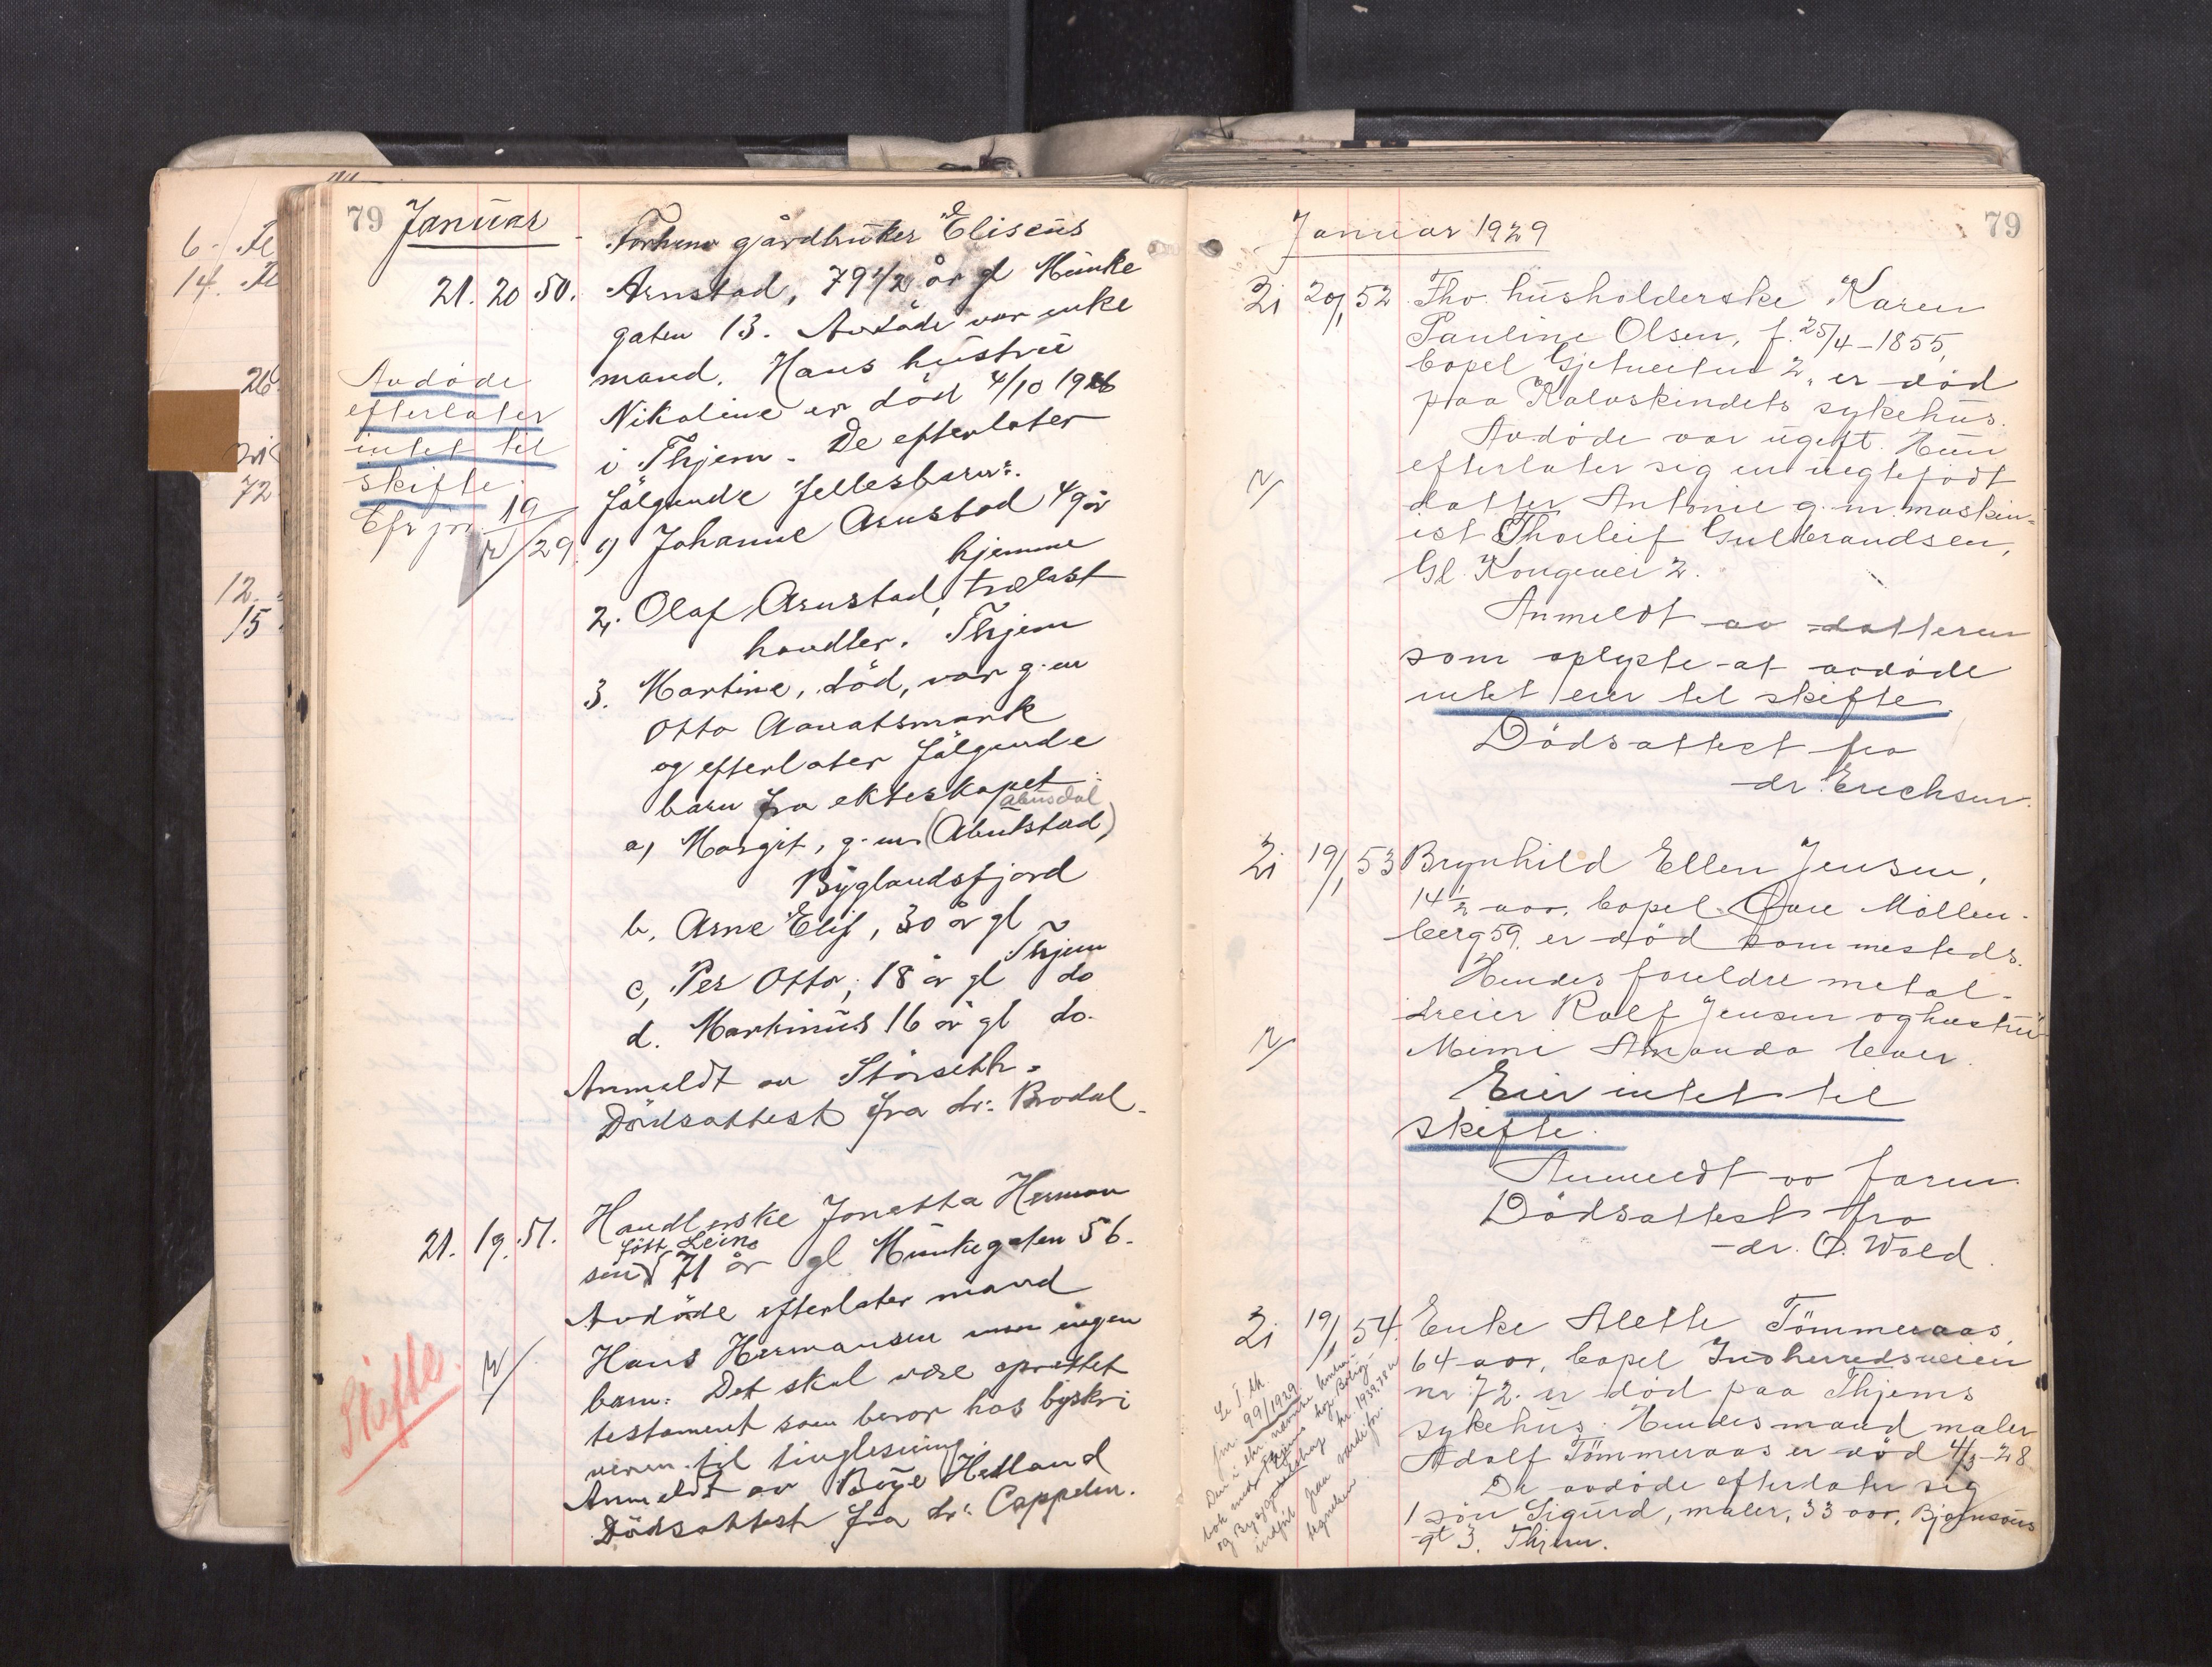 79 Januar
21. 20 50. Forhenv gårdbruker Eliseüs
Arnstad, 79 1/2 år gl Munke
gaten 13. Avdöde var enke
mand. Hans hüstrü
Nikoline er död 4/10 1926
i Thjem. De efterlater
fölgende fellesbarn:
1) Johanne Arnstad 49 år
hjemme
2. Olaf Arnstad, trælast
handler, Thjem
3. Martine, död, var g. m
Otto Aavatsmark
og efterlater fölgende
barn fra ekteskapet
a, Margit, g. m. (
Byglandsfjord
b, Arne Elif, 30 år gl
Thjem
c, Per Otto, 18 år gl do
d. Martinüs 16 år gl do.
Anmeldt av Störseth.
Dödsattest fra dr. Brodal.
Avdöde
efterlater
intet til
skifte.
Efr jnr 19
/29.
21. 19. 51. Handlerske Jonetta Herman
född Leins
sen 71 år gl Munkegaten 56.
Avdöde efterlater mand
Hans Hermansen men ingen
barn. Det skal være oprettet
testament som beror hos byskri
veren til tinglesning.
Anmeldt av Böye Hetland
Dödsattest fra dr. Cappelen.
Skifte.
Januar 1929
79
21 20/1 52 Fhv. husholderske Karen
Pauline Olsen, f. 25/4-1855,
bopel Gjetveitun 2, er död
paa Kalvskindets sykehus.
Avdöde var ugift. Hun
efterlater sig en uegtefödt
datter Antonie g. m. maskin=
ist Thorleif Gulbrandsen,
Gl. Kongevei 2.
Anmeldt av datteren
som oplyste at avdöde
intet eier til skifte.
Dödsattest fra
dr. Erichsen.
21 19/1 53 Brynhild Ellen Jensen,
14 1/2 aar, bopel Övre Möllen-
berg 59, er död sammesteds.
Hendes foreldre metal-
dreier Rolf Jensen og hustru
Mimi Amanda lever.
Eier intet til
skifte.
Anmeldt av faren.
Dödsattest fra
dr. O. Wold.
21 19/1 54. Enke Alette Tömmeraas,
64 aar, bopel Indherredsveien
nr 72. er död paa Thjems
sykehus. Hendes mand maler
Adolf Tömmeraas er död 4/3-28
De avdöde efterlater sig
1 sön Sigurd, maler, 33 aar, Bjørnsöns
gt 3. Thjem.
99/1929.